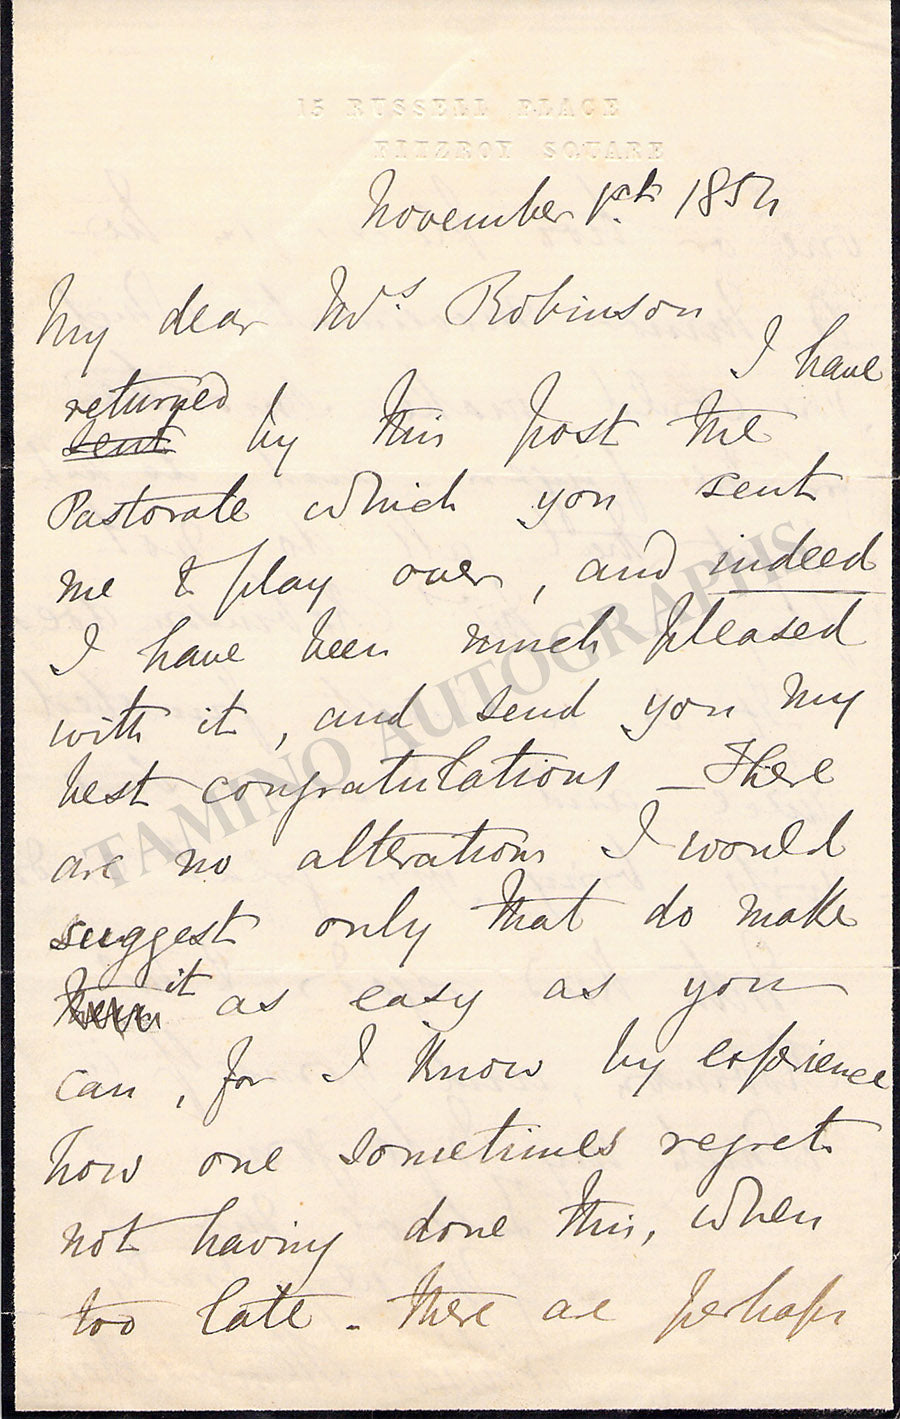 15 RUSSELL PLACE
FITZROY SQUARE
November 1st 1854
My dear Mrs. Robinson
I have
returned
sent by this post the
Pastorale which you sent
me to play over, and indeed
I have been much pleased
with it, and send you my
best congratulations _ There
are no alterations I would
suggest only that do make
it
as easy as you
can, for I know by experience
how one sometimes regrets
not having done this, when
too late. There are perhaps
TAMINO AUTOGRAPHS